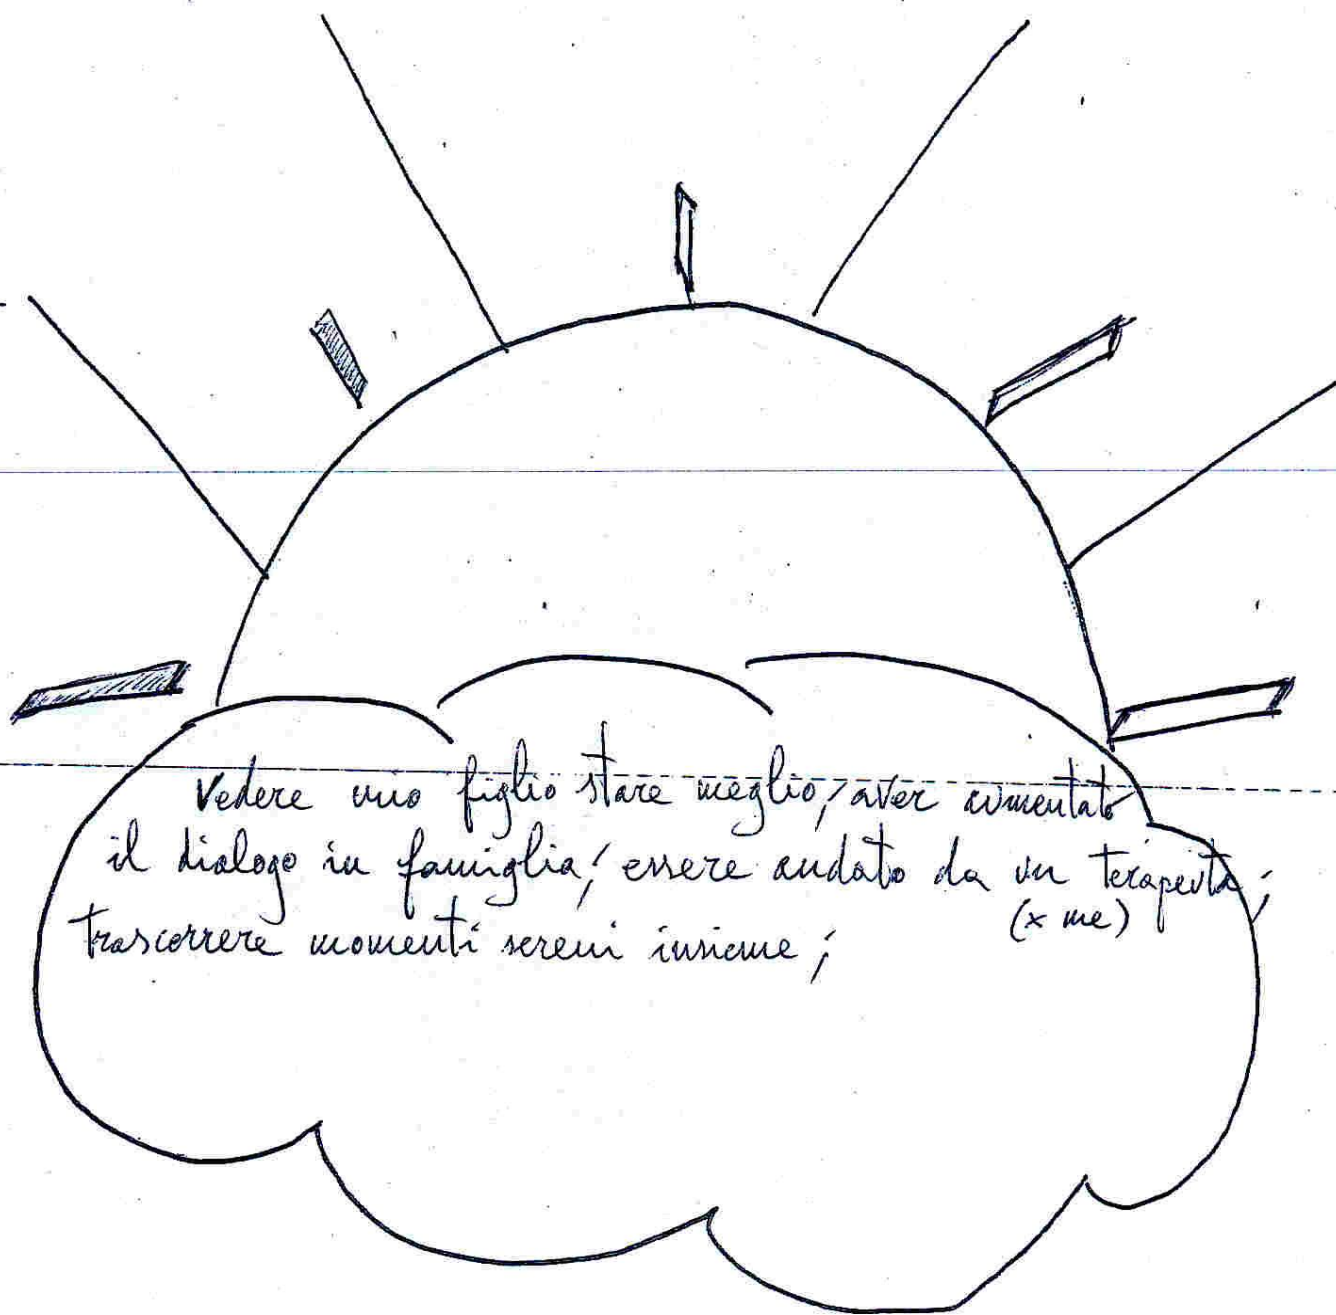 Vedere mio figlio stare meglio; aver aumentato
il dialogo in famiglia; essere andato da un terapeuta;
(x me)
trascorrere momenti sereni insieme;